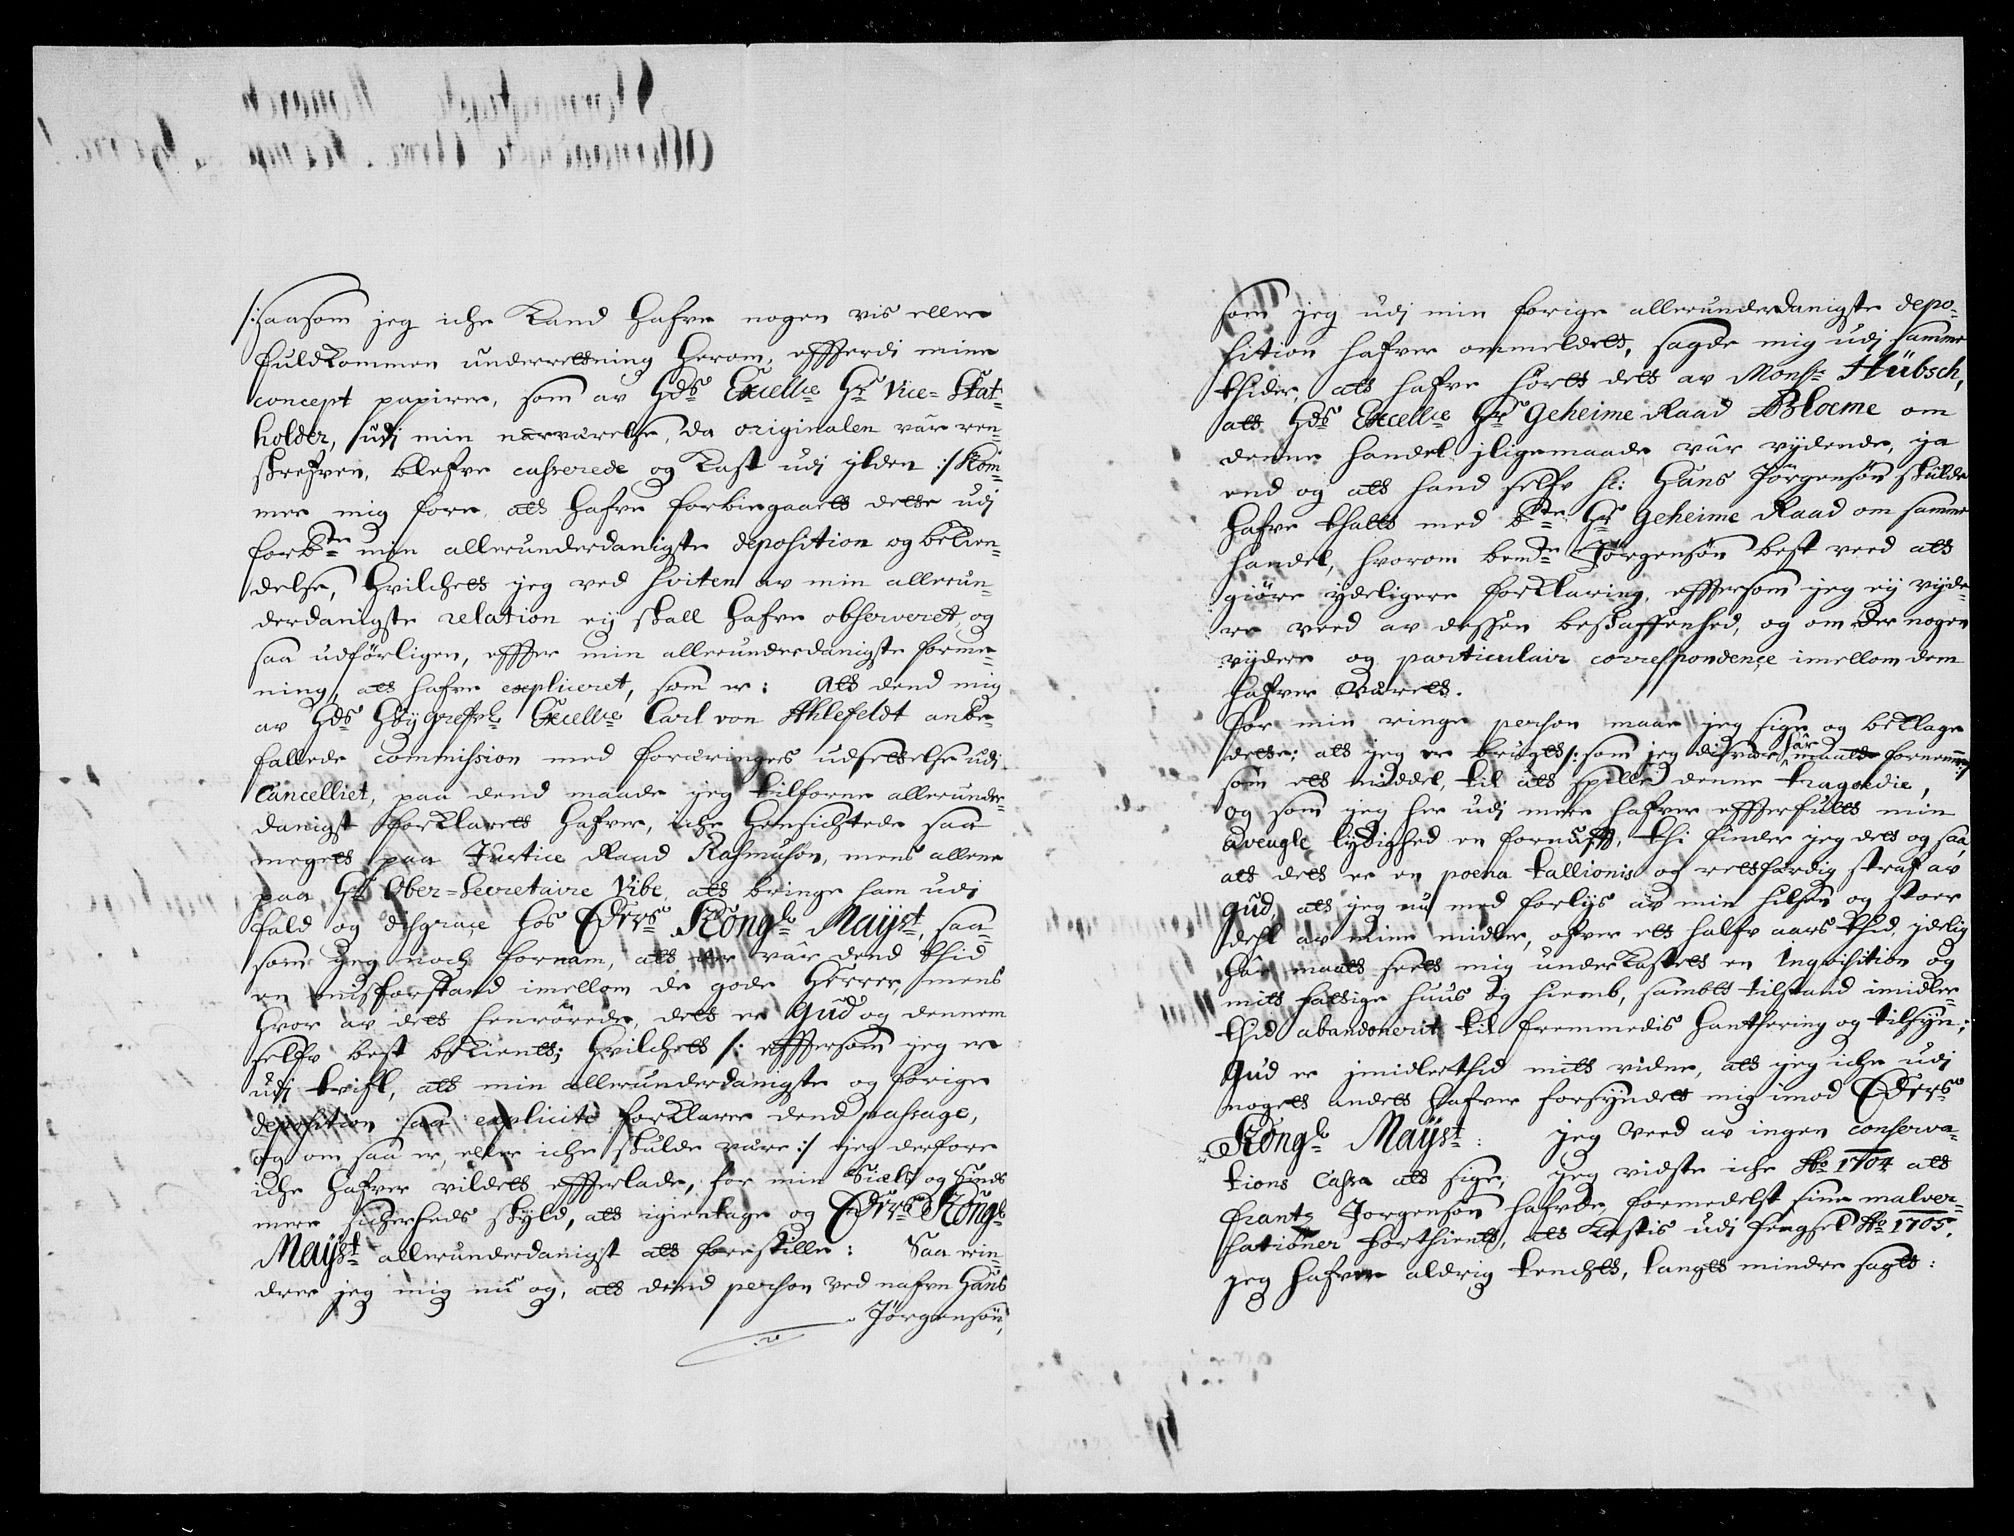 /:saasom jeg iche Kand hafve nogen vis eller
fuldkommen underretning herom, effterdi mine
concept papirer, som av Hds Excellce Hr Vice-Stat-
holder, udj min nærværelse, da originalen vâr ren-
skrefven, blefve casserede og Kast udj ylden :/ Kom-
mer mig fore, att hafve forbiegaaett dette udj
forbte min allerunderdanigste deposition og bekien-
delse, hvilchett jeg ved sviten av min allerun-
derdanigste relation eij skall hafve observeret, og
saa udförligen, effter min allerunderdanigste forme-
ning, att hafve expliceret, som er: Att dend mig
av Hds Höygrefvl. Excellce Carl von Ahlefeldt anbe-
fallede commission med foræringers udsettelse udj
Cancelliet, paa dend maade jeg tilforne allerunder-
danigst forklarett hafver, iche hensichtede saa
megett paa Justice Raad Rasmuson, mens allene
paa Hr Ober-Secretaire Vibe, att bringe ham udj
fald og disgrace hos Eders Kongl. Mayst, saa-
som jeg noch fornam, att der vâr dend thid
en misforstand imellom de gode Herrer, mens
hvor av dett henrörede, dett er Gud og dennem
selfv best bekient; hvilchett /: efftersom jeg er
udj tvifl, att min allerunderdanigste og forige
deposition saa explicite forklarer dend passage,
og om saa er, eller iche skulde være :/ jeg derfore
iche hafver vildett effterlade, for min Siæls og Sinds
mere sicherheds skyld, att igientage og Eders Kongl.
Mayst allerunderdanigst att forestille: Saa erin-
drer jeg mig nu og, att dend person ved nafvn Hans
Jörgensön,
som jeg udj min forige allerunderdanigste depo-
sition hafver ommeldett, sagde mig udj samme
thider, att hafve hört dett av Monsr Hübsch,
att Hds Excellce Hr Geheime Raad Bloeme om
denne handel iligemaade vâr vydende, ja
end og att hand selfv Sr: Hans Jörgensön skulde
hafve thalt med bte Hr Geheime Raad om samme
handel, hvorom bemte Jörgensön best veed att
giöre yderligere forklaring, effttersom jeg eij vyde-
re veed av dessen beskaffenhed, og om der nogen
vydere og particulair correspondence imellom dem
hafver værett.
For min ringe person maae jeg sige og beklage
dette; att jeg er brugt /: som jeg disvær saa maatte fornemme :/
som ett middel, til att spille denne tragoedie,
og som jeg her udj mere hafver effterfult min
aveugle lydighed en fornufft, thi finder jeg dett og saa,
att dett er en poena tallionis og rettferdig straf av
Gud, att jeg nu med forlys av min hilsen og stoer
dehl av mine midler, ofver ett halfv aars thid, ydelig
har maatt seett mig underkastett en Inqvisition og
mitt fattige huus og hiemb, sambt tilstand imidler-
thid abandonerit til fremmedis handtering og tilsyn;
Gud er imidlerthid mitt vidne, att jeg iche udj
nogett andett hafver forsyndett mig imod Eders
Kongl. Mayst: jeg veed av ingen conserva-
tions Cassa att sige; jeg vidste iche Ao 1704 att
Frantz Jorgensön hafvde, formedelst sine malver-
sationer forthient, att Kastis udj fengsel Ao 1705,
jeg hafver aldrig tencht, langt mindre sagt: